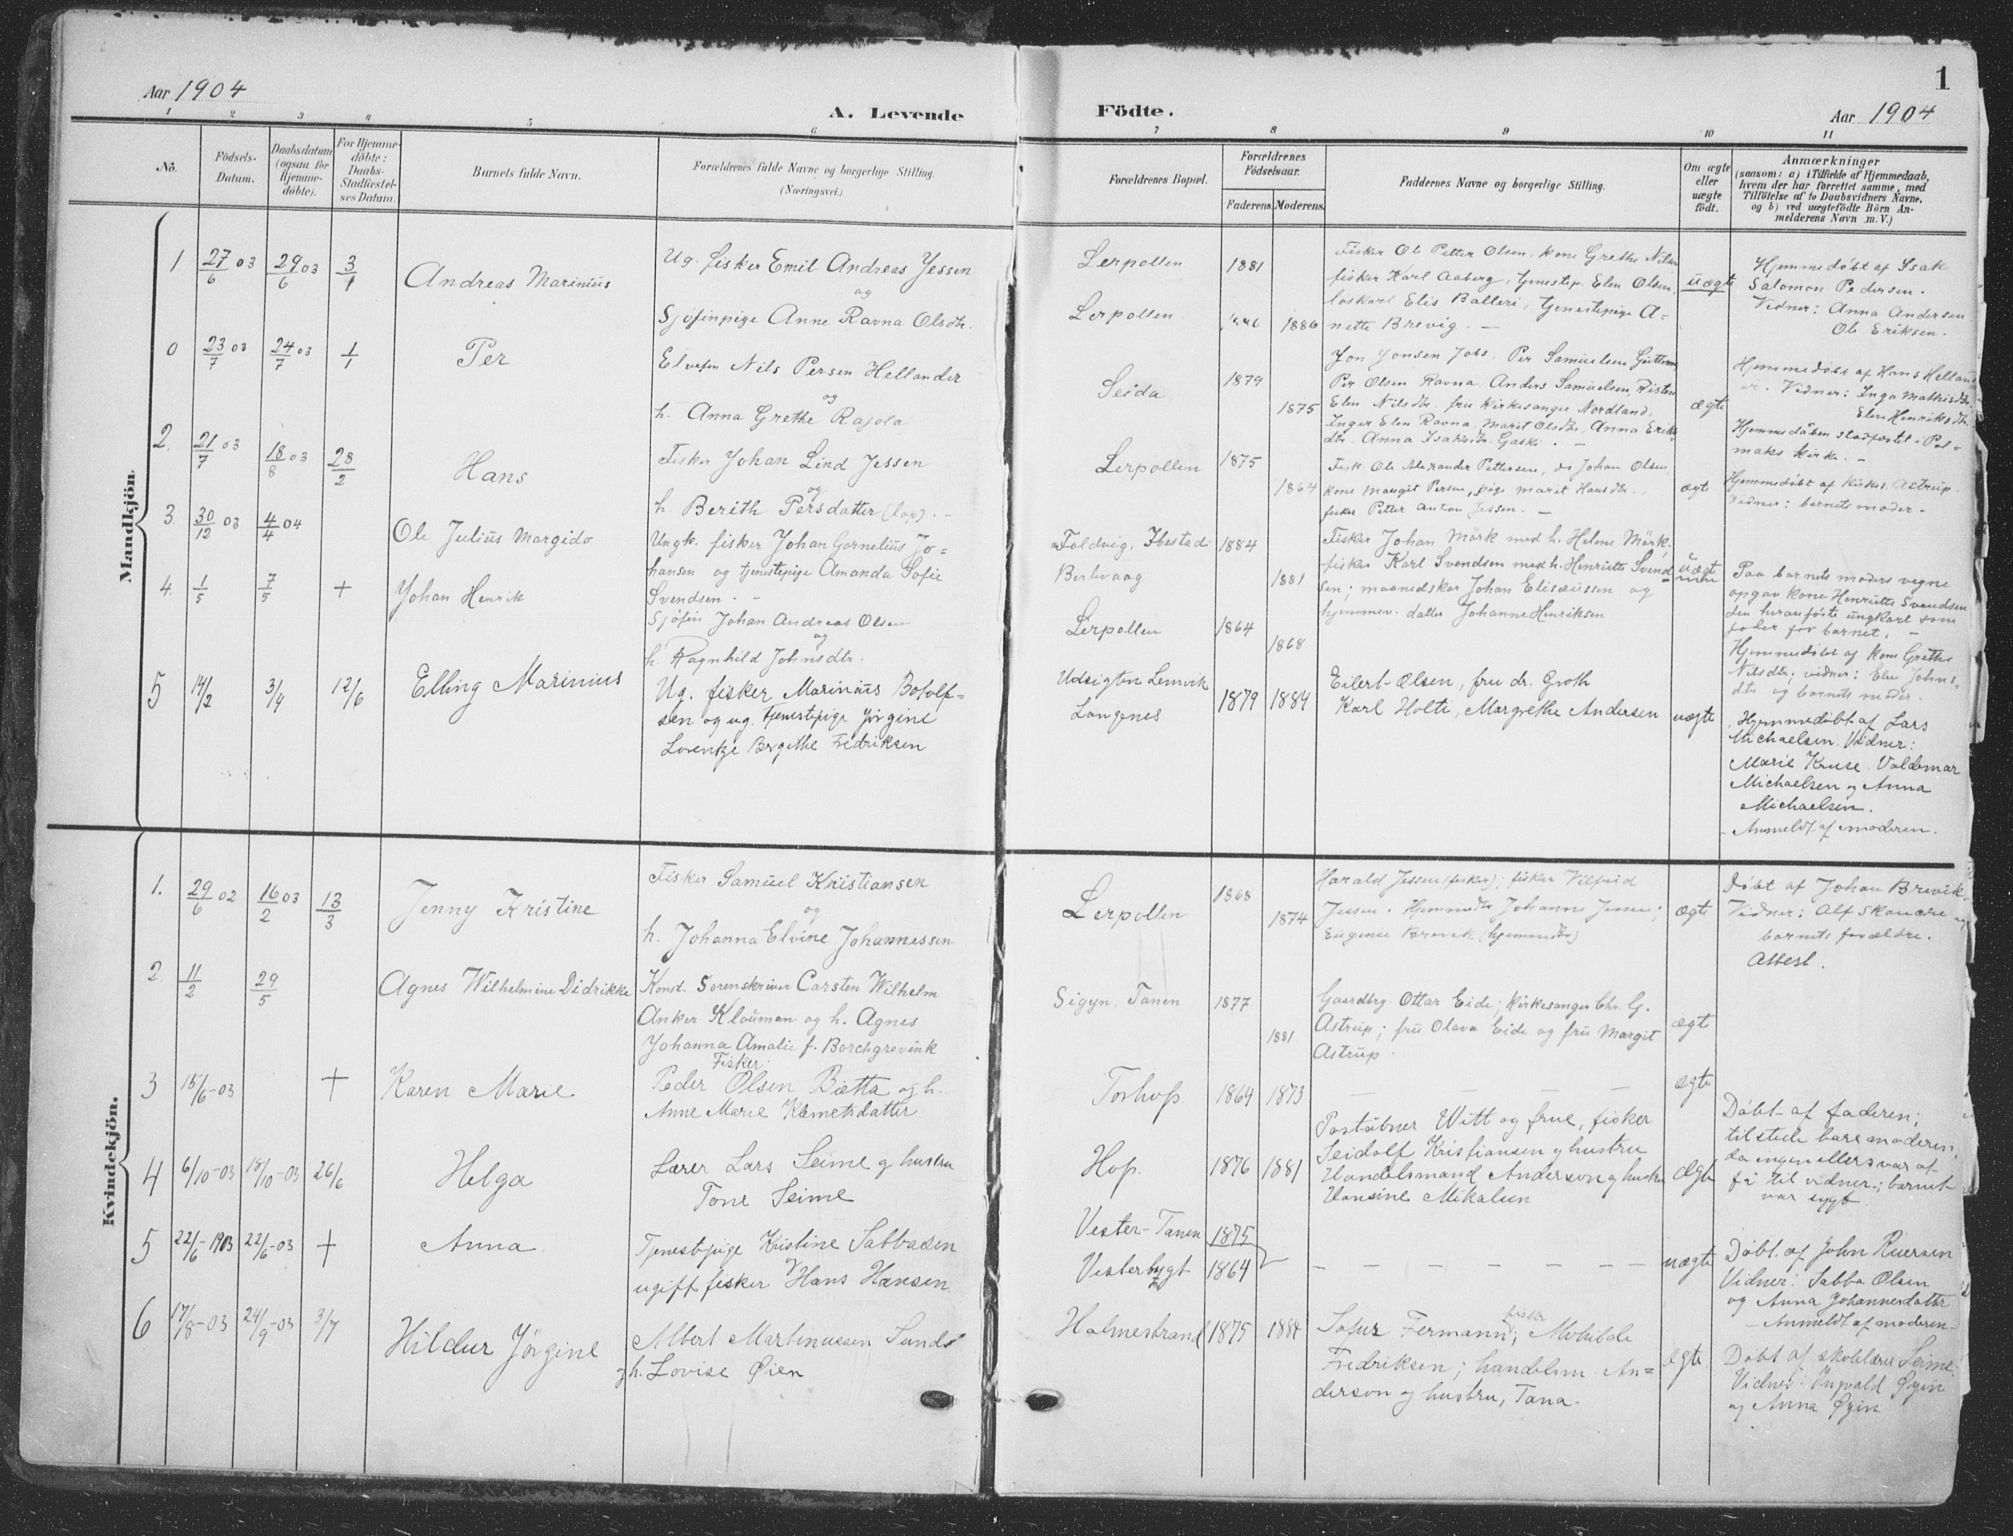 1
Aar 1904
A. Levende Födte.
Aar 1904
1 2 3 4 5 6 7 8 9 10 11
No.
Födsels-
Datum.
Daabsdatum
(ogsaa for
Hjemme-
döbte).
For Hjemme-
döbte:
Daabs-
Stadfæstel-
ses Datum.
Barnets fulde Navn.
Forældrenes fulde Navne og borgerlige Stilling.
(Næringsvei.)
Forældrenes Bopæl.
Forældrenes
Födselsaar.
Faderens. Moderens.
Faddernes Navne og borgerlige Stilling.
Om ægte
eller
uægte
födt.
Anmærkninger
(saasom: a) i Tilfælde af Hjemmedaab,
hvem der har forrettet samme, med
Tilföielse af to Daabsvidners Navne,
og b) ved uægtefödte Börn An-
melderens Navn m. V.)
Mandkjön.
1 27/6 03 29/6 03 3/1 Andreas Marinius
Ug. fisker Emil Andreas Jessen
og
Sjøfinpige Anne Ravna Olsdtr.
Lerpollen 1881
Lerpollen 1886
Fisker Ol Petter Olsen, kone Grethe Nilsen
fisker Karl Aaberg, tjenestep. Elen Olsen,
loskarl Elis Balteri, tjenestepige A-
nette Brevig. —
uægte
Hjemmedøbt af Isak
Salomon Pedersen.
Vidner: Anna Andersen
Ole Eriksen.
0 23/7 03 24/7 03 1/1 Per
Elvefin Nils Persen Hellander
og
h. Anna Grethe Rajola
Seida 1879 1875
Jon Jonsen Jobs. Per Samuelsen
Per Olsen Ravna. Anders Samuelsen, Risten
Elen Nilsdtr. fru Kirkesanger Nordland,
Inger Elen Ravna, Marit Olsdtr. Anna Eriks-
dtr. Anna Isaksdtr. Gaski. —
ægte
Hjemmedøbt af Hans Helland-
er. Vidner: Inga Mathisdtr.
Elen Henriksdtr.
Hjemmedåben stadfæstet i Pol-
maks kirke. —
2. 21/7 03 18/8 03 28/2 Hans
Fisker Johan Lind Jessen
og
h. Berith Persdatter (lap). —
Lerpollen 1875 1864
Fisk. Ole Alexander Pettersen, do Johan Olsen,
kone Margit Persen, pige Marit Hansdtr.,
fisker Petter Anton Jessen. —
ægte
Hjemmedøbt af kirkes. Astrup.
Vidner: barnets moder.
3. 30/12 03 4/4 04 Ole Julius Margido
Ungk. fisker Johan Cornelius Jo-
hansen og tjenestepige Amanda Sofie
Svendsen. —
Foldvig, Ibestad 1884
Berlevaag 1881
Fisker Johan Mörk med h. Helene Mörk,
fisker Karl Svendsen med h. Henriette Svend-
sen; maanedskar Johan Eliseussen og
hjemmev. datter Johanne Henriksen
uægte
Paa barnets moders vegne
opgav kone Henriette Svendsen
den heranførte ungkarl som
fader for barnet. —
4. 1/5 7/5 + Johan Henrik
Sjøfin Johan Andreas Olsen
og
h. Ragnhild Johnsdtr.
Lerpollen 1864 1868
Hjemmedøbt af kone Grethe
Nilsdtr, vidner: Elen Johns-
dtr og barnets moder.
5 14/2 3/4 12/6 Elling Marinius
Ug. fisker Marinius Botolf-
sen og ug. tjenestepige Jørgine
Lorentze Bergithe Fredriksen
Udsigten Lemvik
Langenes 1879 1884
Eilert Olsen, fru dr. Groth
Karl Holte, Margrethe Andersen
uægte
Hjemmedøbt af Lars
Michaelsen. Vidner:
Marie Kruse. Valdemar
Michaelsen og Anna
Michaelsen.
- Anmeldt af moderen.
Kvindekjön.
1. 29/6 02 16/2 03 13/3 Jenny Kristine
Fisker Samuel Kristiansen
og
h. Johanna Elvine Johannessen
Lerpollen 1868 1874
Harald Jessen (fisker); fisker Vilfrid
Jessen. Hjemmedtr Johanne Jensen;
Eugenie Brevik (hjemmedtr)
ægte
Døbt af Johan Brevik.
Vidner: Alf Skancke og
barnets forældre.
Attest.
2. 11/2 29/5 Agnes Wilhelmine Didrikke
Konst. Sorenskriver Carsten Wilhelm
Anker Klouman og h. Agnes
Johanna Amalie f. Borchgrevink
Sigyn, Tanen 1877 1881
Gaardbrg. Ottar Eide; Kirkesanger Chr. G.
Astrup; fru Olava Eide og fru Margit
Astrup.
ægte
3 15/6-03 + Karen Marie
Fisker
Peder Olsen Bætta og h.
Anne Marie Klemetsdatter
Torhop 1864 1873 — — —
ægte
4 6/10-03 18/10-03 26/6 Helga
Lærer Lars Seime og hustru
Tone Seime
Hop. 1876 1881
Postaabner Witt og frue, fisker
Seidolf Kristiansen og hustru
Handelsmand Anderson og hustru
Hansine Mikalsen
ægte
Døbt af faderen;
tilstede bare moderen,
da ingen ellers var at
få til vidner; barnet
var sygt
5 22/6-1903 22/6-03 + Anna
Tjenestpige Kristine Sabbasen
og
ugift fisker Hans Hansen
Vester-Tanen 1875
Vesterbygt 1864
— — — — — — — —
uægte
Døbt af John Ruersen
Vidner: Sabba Olsen
og Anna Johannesdatter
- Anmeldt af moderen -
6 17/8-03 24/9-03 3/7 Hildur Jørgine
Albert Martinussen Sunds
og h. Lovise Øien
Holmestrand 1875 1884
fisker
Tofur Fermann; Mathilde
Fredriksen; handelsm An-
derson og hustru, Tana.
ægte
Døbt af skolelærer Seime.
Vidner: Ingvald Øyen
og Anna Øyen